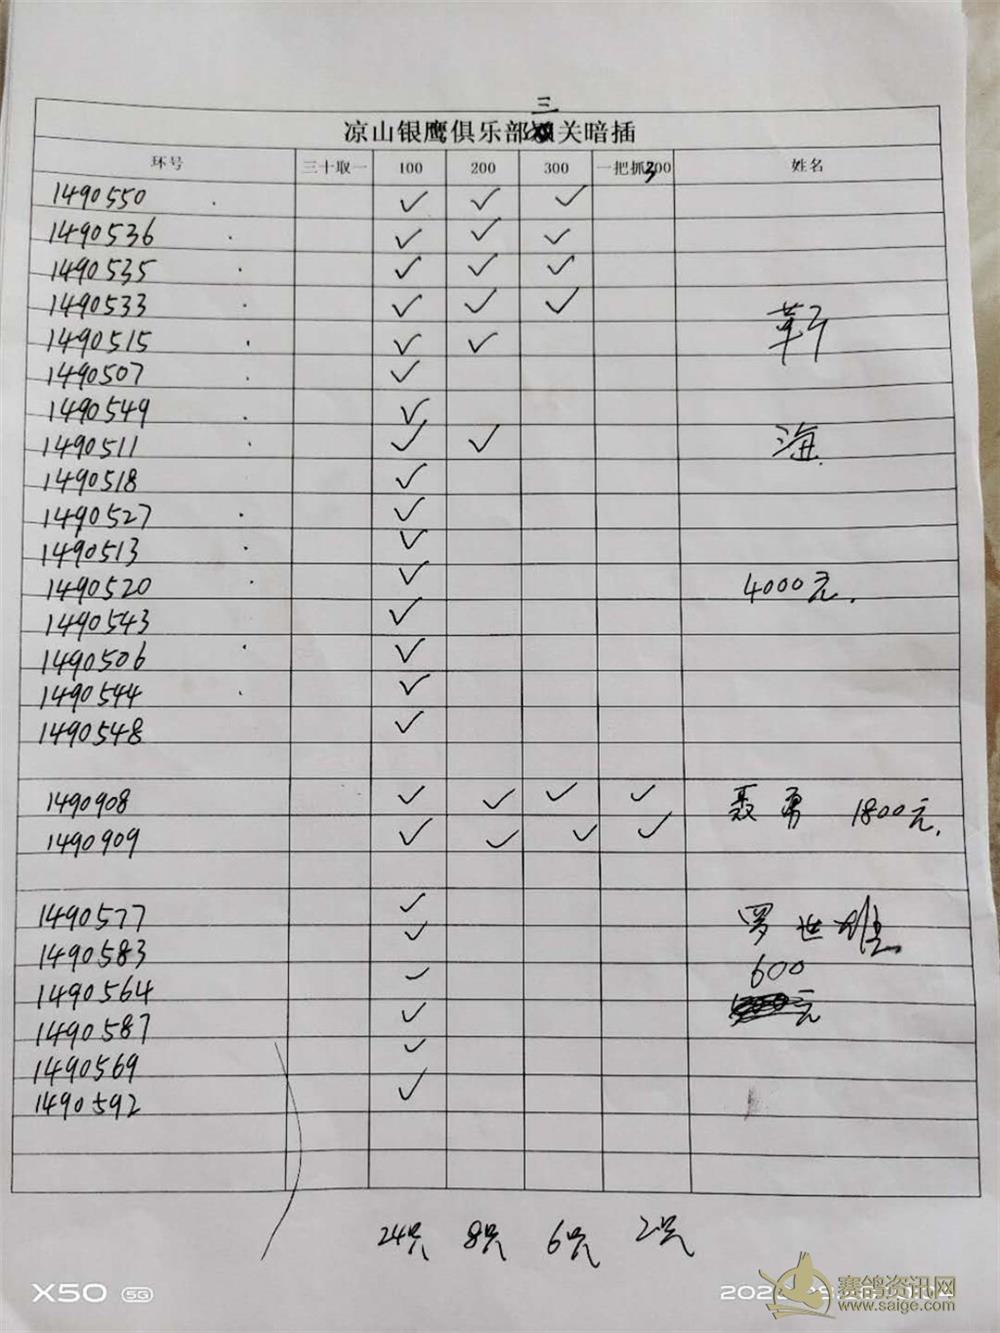 三
凉山银鹰俱乐部关暗插
环号 三十取一 100 200 300 一把抓300 姓名
1490550 ✓ ✓ ✓
1490536 ✓ ✓ ✓
1490535 ✓ ✓ ✓
1490533 ✓ ✓ ✓ 靳
1490515 ✓ ✓
1490507 ✓
1490549 ✓
1490511 ✓ ✓ 海
1490518 ✓
1490527 ✓
1490513 ✓
1490520 ✓ 4000元.
1490543 ✓
1490506 ✓
1490544 ✓
1490548 ✓
1490908 ✓ ✓ ✓ ✓ 聂勇 1800元.
1490909 ✓ ✓ ✓ ✓
1490577 ✓ 罗世雄
1490583 ✓ 600
1490564 ✓ 元
1490587 ✓
1490569 ✓
1490592 ✓
24只 8只 6只 2只
X50 5G
赛鸽资讯网
www.saige.com